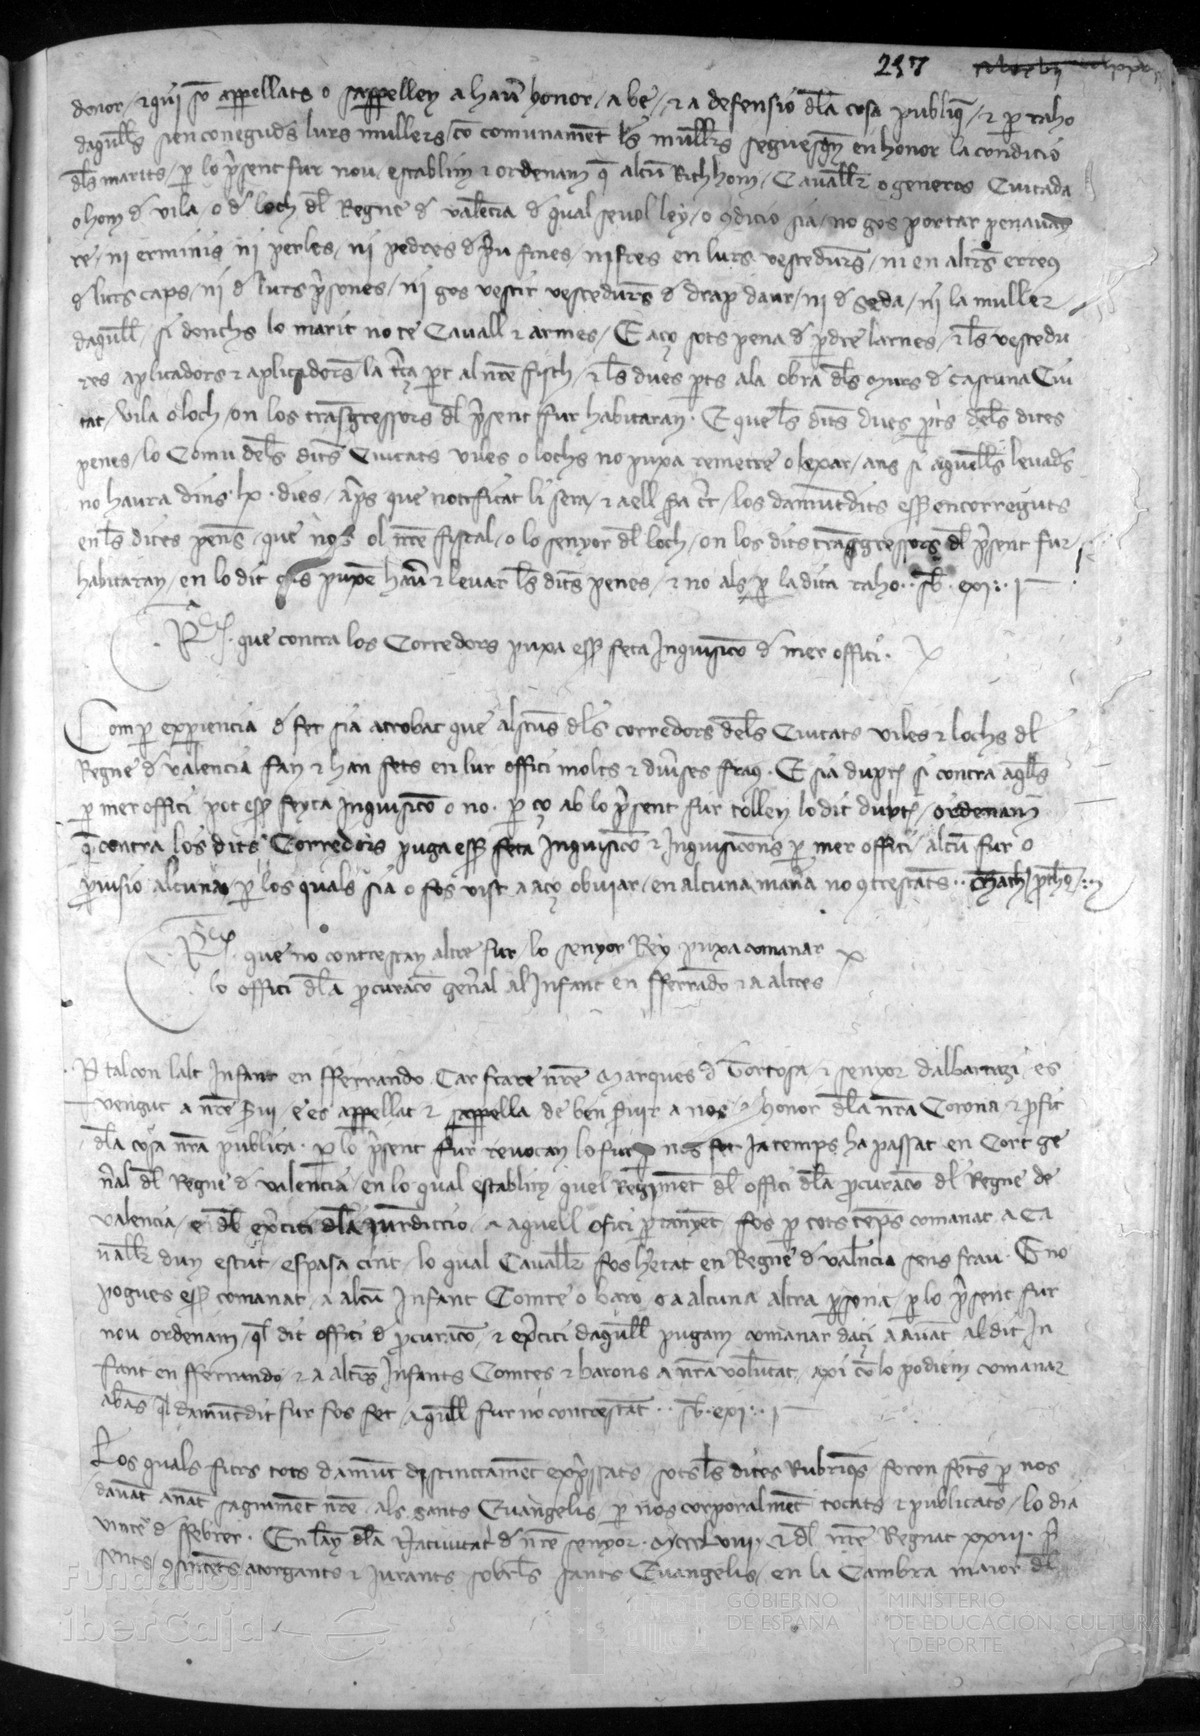 237
donor / e qui so appellats o sappellen a haver honor / a be / e a defensio dla cosa publiq / e p raho
daqlls sien coneguds lurs mullers / co comunamet ls mullers seguesqn en honor la condicio
dls marits / p lo psent fur nou establim e ordenam q alcu Rich hom / Cavaller o generos Ciutada
o hom d vila / o d loch dl Regne d valencia d qual sevol ley / o condicio sia / no gos portar penavay
re / ni erminis ni perles / ni pedres d fines / ni fres en lurs vestedures / ni en altres arreus
d lurs caps / ni d lurs psones / ni gos vestir vestedures d drap daur / ni d seda / ni la muller
daqll / si donchs lo marit no te Cavall e armes / E aço sots pena d pdre larnes / e ls vestedu
res aplicadors e aplicadores / la terça pt al nre fisch / e ls dues pts ala obra dls murs d cascuna Ciu
tat / vila o loch / on los trasgressors dl psent fur habitaran . E quels dits dues pts dels dites
penes / lo Comu dels dits Ciutats viles o lochs no puxa remetre o lexar / ans si aquells levads
no haura dins . lx . dies / aps que notificat li sera / e a ell sia cert / los damutdits esser encorreguts
en ls dites penes / que nos ol nre fiscal / o lo senyor dl loch / on los dits trasgressors dl psent fur
habitaran / en lo dit cas puxe haver e levar ls dits penes / e no als p la dita raho . . sb . exi : . .
R . que contra los Corredors puxa esser feta Inquisicio d mer offici .
Com p experiencia d fet sia atrobat que alscus dls corredors dels Ciutats viles e lochs dl
Regne d valencia fan e han fets en lur offici molts e diverses fraus . E sia dupte si contra aqlls
p mer offici pot esser feyta Inquisicio o no . p ço ab lo psent fur tollen lo dit dupte / ordenam
q contra los dits Corredors puga esser feta Inquisicio e Inquisicions p mer offici / alcu fur o
provisio alcuna p los quals sia o fos vist a aço obviar / en alcuna manera no contrestants . .
R . que no contrestan altre fur / lo senyor Rey puxa comanar
lo offici dla pcuracio general al Infant en fferrando e a altres
P tal con lalt Infant en fferrando Car frare nre Marques d Tortosa / e senyor dalbarrazi / es
vengut a nre servii / e es appellat e sappella de ben servir a nos / honor dla nra Corona e pfit
dla cosa nra publica . p lo psent fur revocan lo fur p nos fet Ja temps ha passat en Cort ge
neral dl Regne d valencia / en lo qual establim / quel Regiment dl offici dla pcuracio dl Regne de
valencia / e dl exercici dla jurediccio / a aquell ofici ptanyet / fos p tots teps comanat a Ca
valler dun escut / espasa cint / lo qual Cavaller fos heretat en Regne d valencia sens frau . E no
pogues esser comanat a alcu Infant Comte o baro / o a alcuna altra psona / p lo psent fur
nou ordenam / ql dit offici d pcuracio / e exercici daqll pugam comanar daci a avat al dit In
fant en fferrando e a altres Infants Comtes e barons a nra voluntat / axi co lo podiem comanar
abas ql damutdit fur fos fet / aqll fur no contrestat . . sb . exi : . .
Los quals furs tots damut distinctamet expressats / sots ls dites Rubriques foren fets p nos
davat anat sagramet nre als sants Evangelis p nos corporalmet tocats e publicats / lo dia
vinte d ffebrer . En lany dla Nativitat d nre senyor . Mccclviii . e dl nre Regnat xxiii . p
sents / consintets atorgants e jurants sobrels sants Evangelis / en la Cambra maior dl
Fundación
iberCaja
GOBIERNO
DE ESPAÑA
MINISTERIO
DE EDUCACIÓN, CULTURA
Y DEPORTE